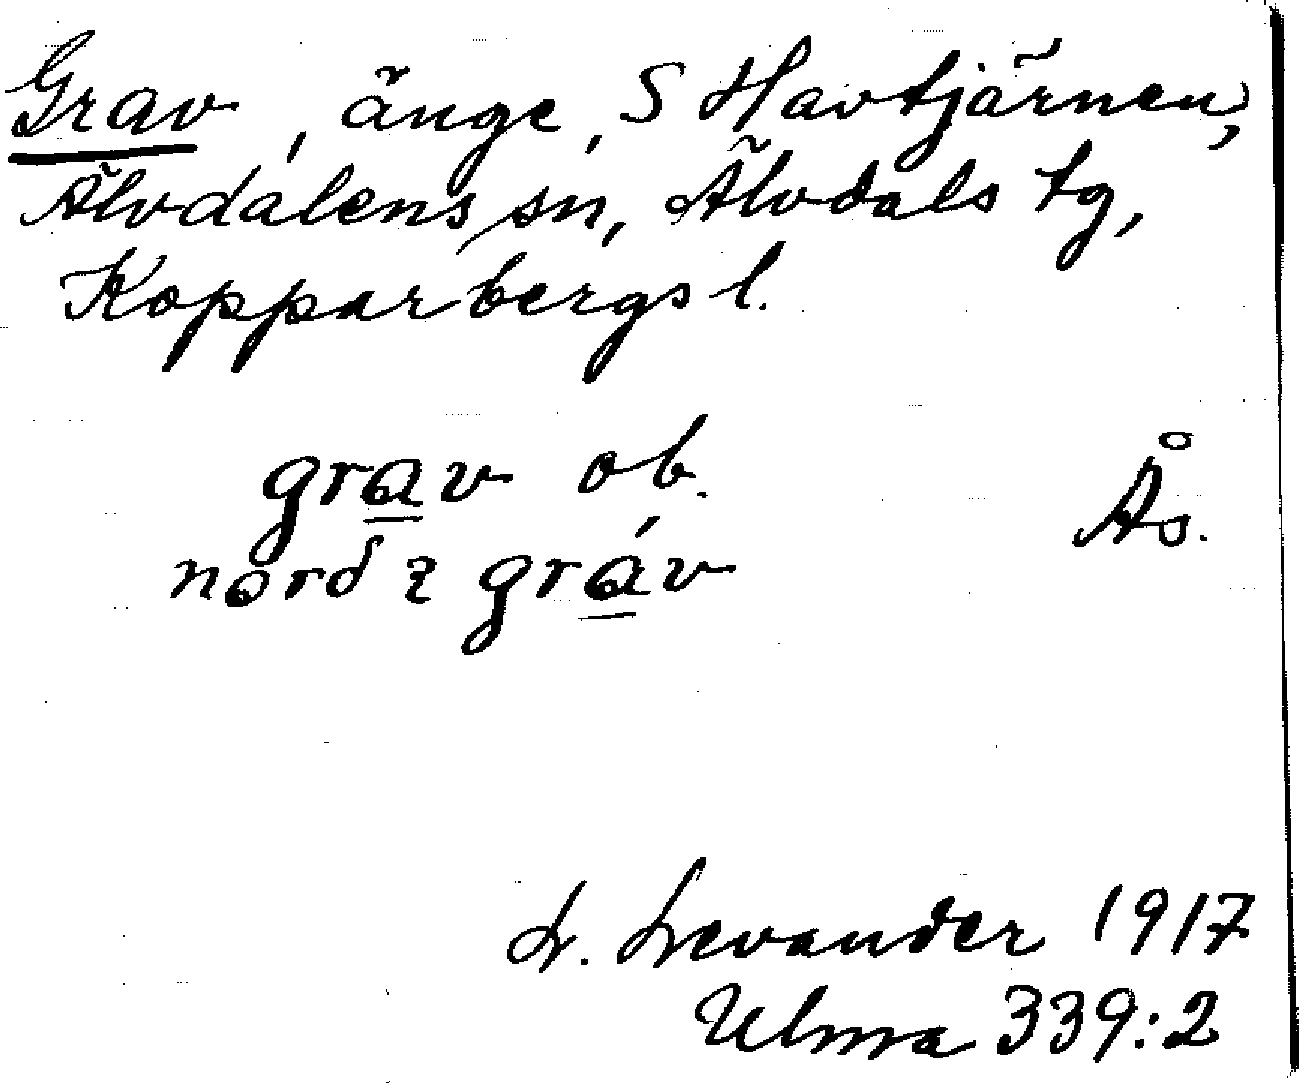 Grav, änge, S Havtjärnen,
Älvdalens sn, Älvdals tg,
Kopparbergs l.
grav ob.
Ås.
nord i gráv
L. Levander 1917
Ulma 339:2